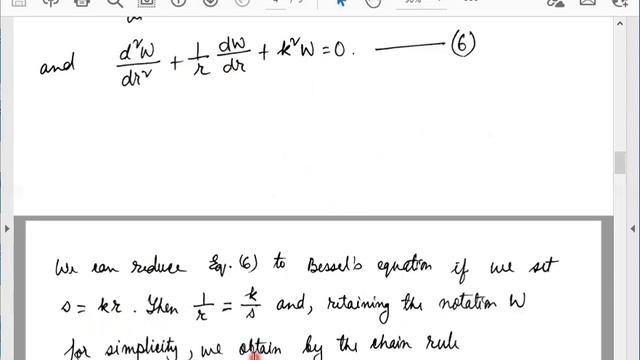 and d²W/dr² + 1/r dW/dr + k²W = 0. ——— (6)
We can reduce Eq. (6) to Bessel's equation if we set
s = kr. Then 1/r = k/s and, retaining the notation W
for simplicity, we obtain by the chain rule